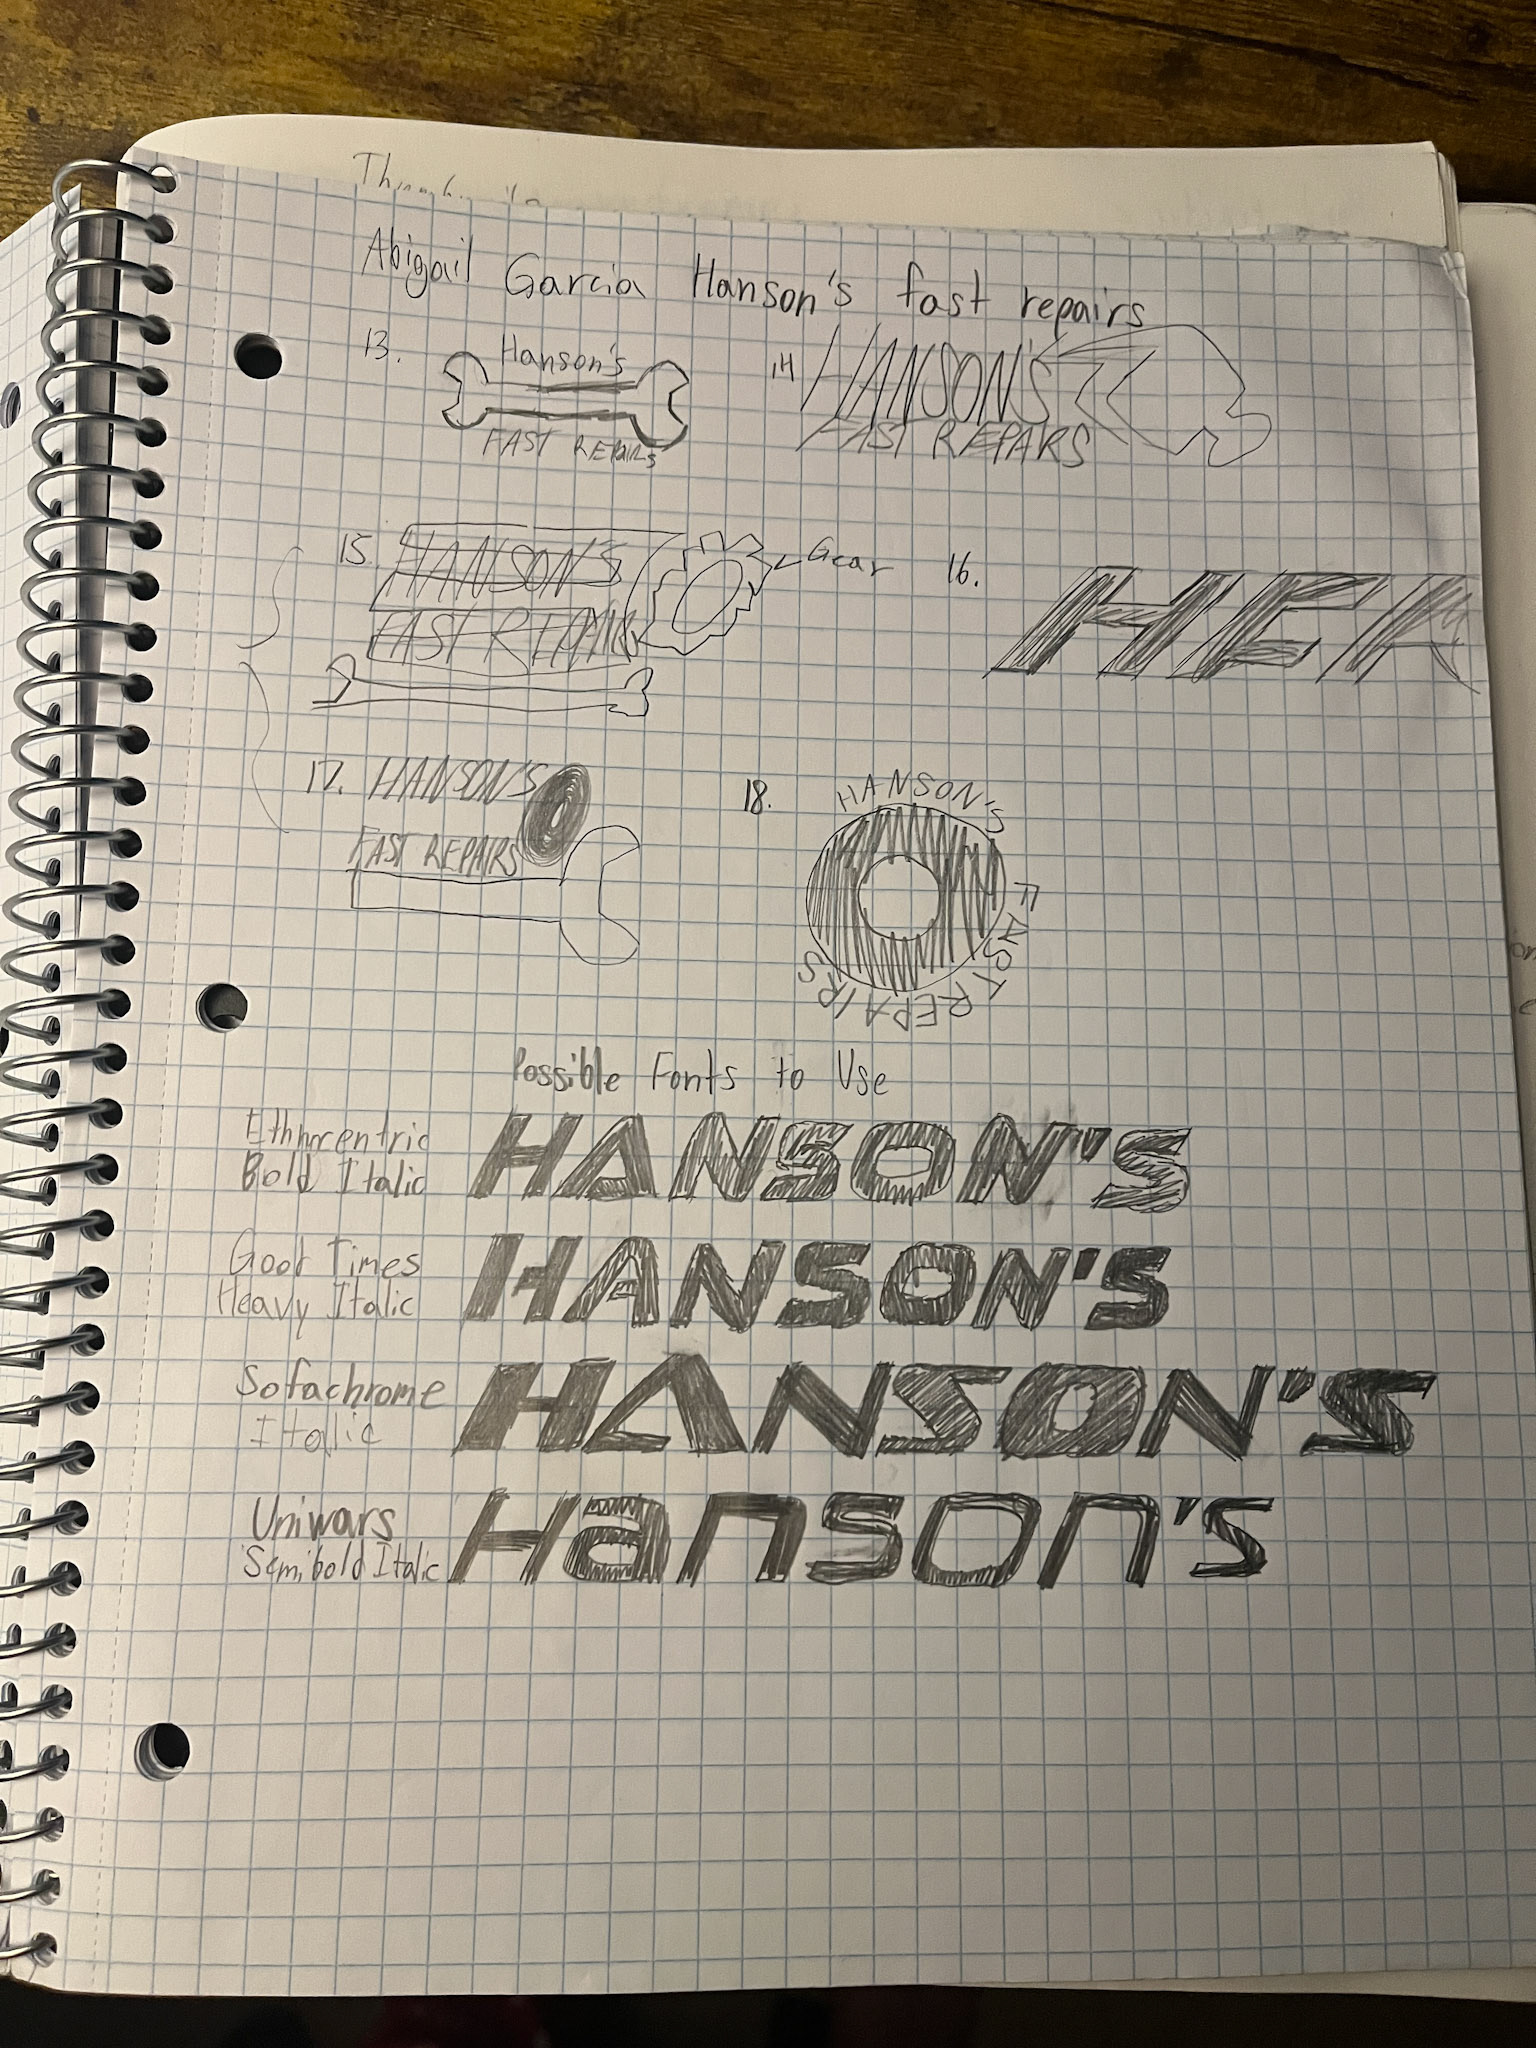 Abigail Garcia Hanson's fast repairs
13.
Hanson's
FAST REPAIRS
14
HANSON'S
FAST REPAIRS
15.
HANSON'S
FAST REPAIR
Gear
16.
17. HANSON'S
FAST REPAIRS
18.
HANSON'S
FAST REPAIRS
Possible Fonts to Use
Ethnocentric
Bold Italic
HANSON'S
Good Times
Heavy Italic
HANSON'S
Sofachrome
Italic
HANSON'S
Uniwars
Semibold Italic
Hanson's